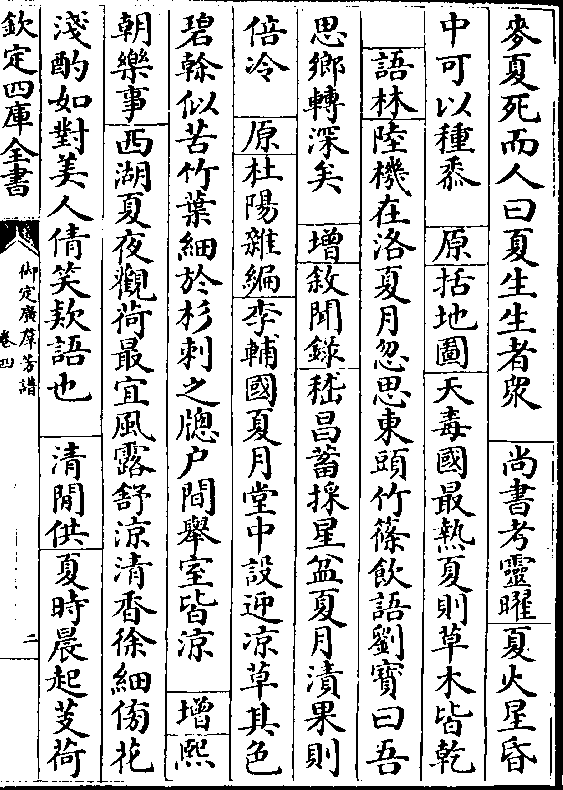 麥夏死而人曰夏生生者眾　尚書考靈曜夏火星昏
中可以種黍　原括地圖天毒國最熱夏則草木皆乾
語林陸機在洛夏月忽思東頭竹篠飲語劉寶曰吾
思鄉轉深矣　增敘聞錄嵇昌蓄採星盆夏月漬果則
倍冷　原杜陽雜編李輔國夏月堂中設迎涼草其色
碧榦似苦竹葉細於杉刺之牕戶間舉室皆涼　增熙
朝樂事西湖夏夜觀荷最宜風露舒涼清香徐細傍花
淺酌如對美人倩笑欵語也　清閒供夏時晨起芰荷
欽定四庫全書
御定廣羣芳譜
卷四
二